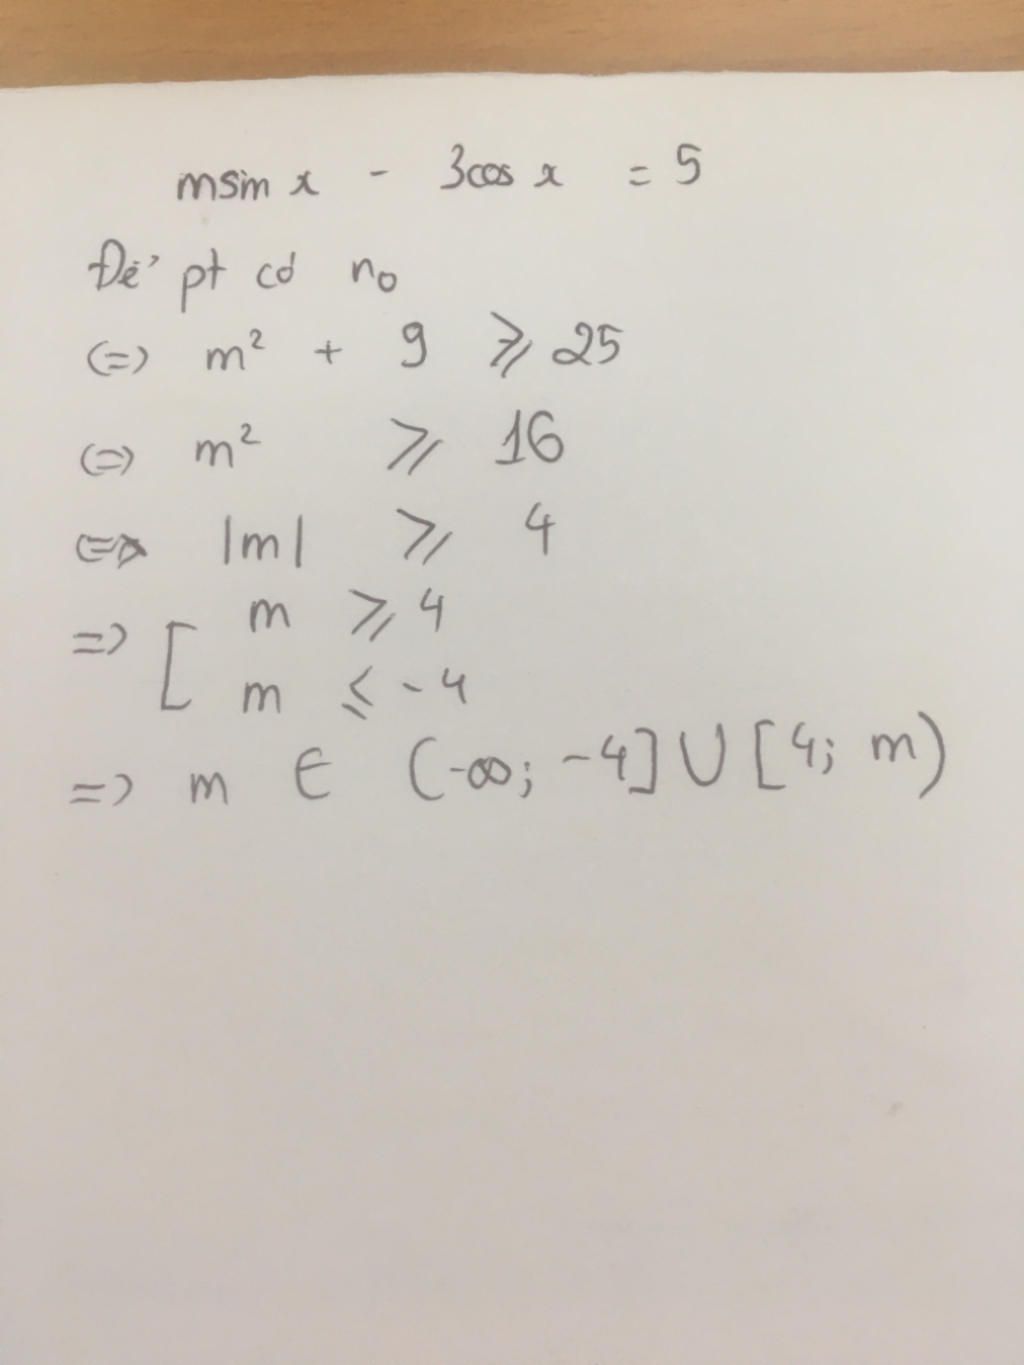 msin x - 3cos x = 5
Để pt có n₀
(=) m² + 9 ⩾ 25
(=) m² ⩾ 16
(=> |m| ⩾ 4
=> [ m ⩾ 4
m ⩽ -4
=> m ∈ (-∞; -4] ∪ [4; m)